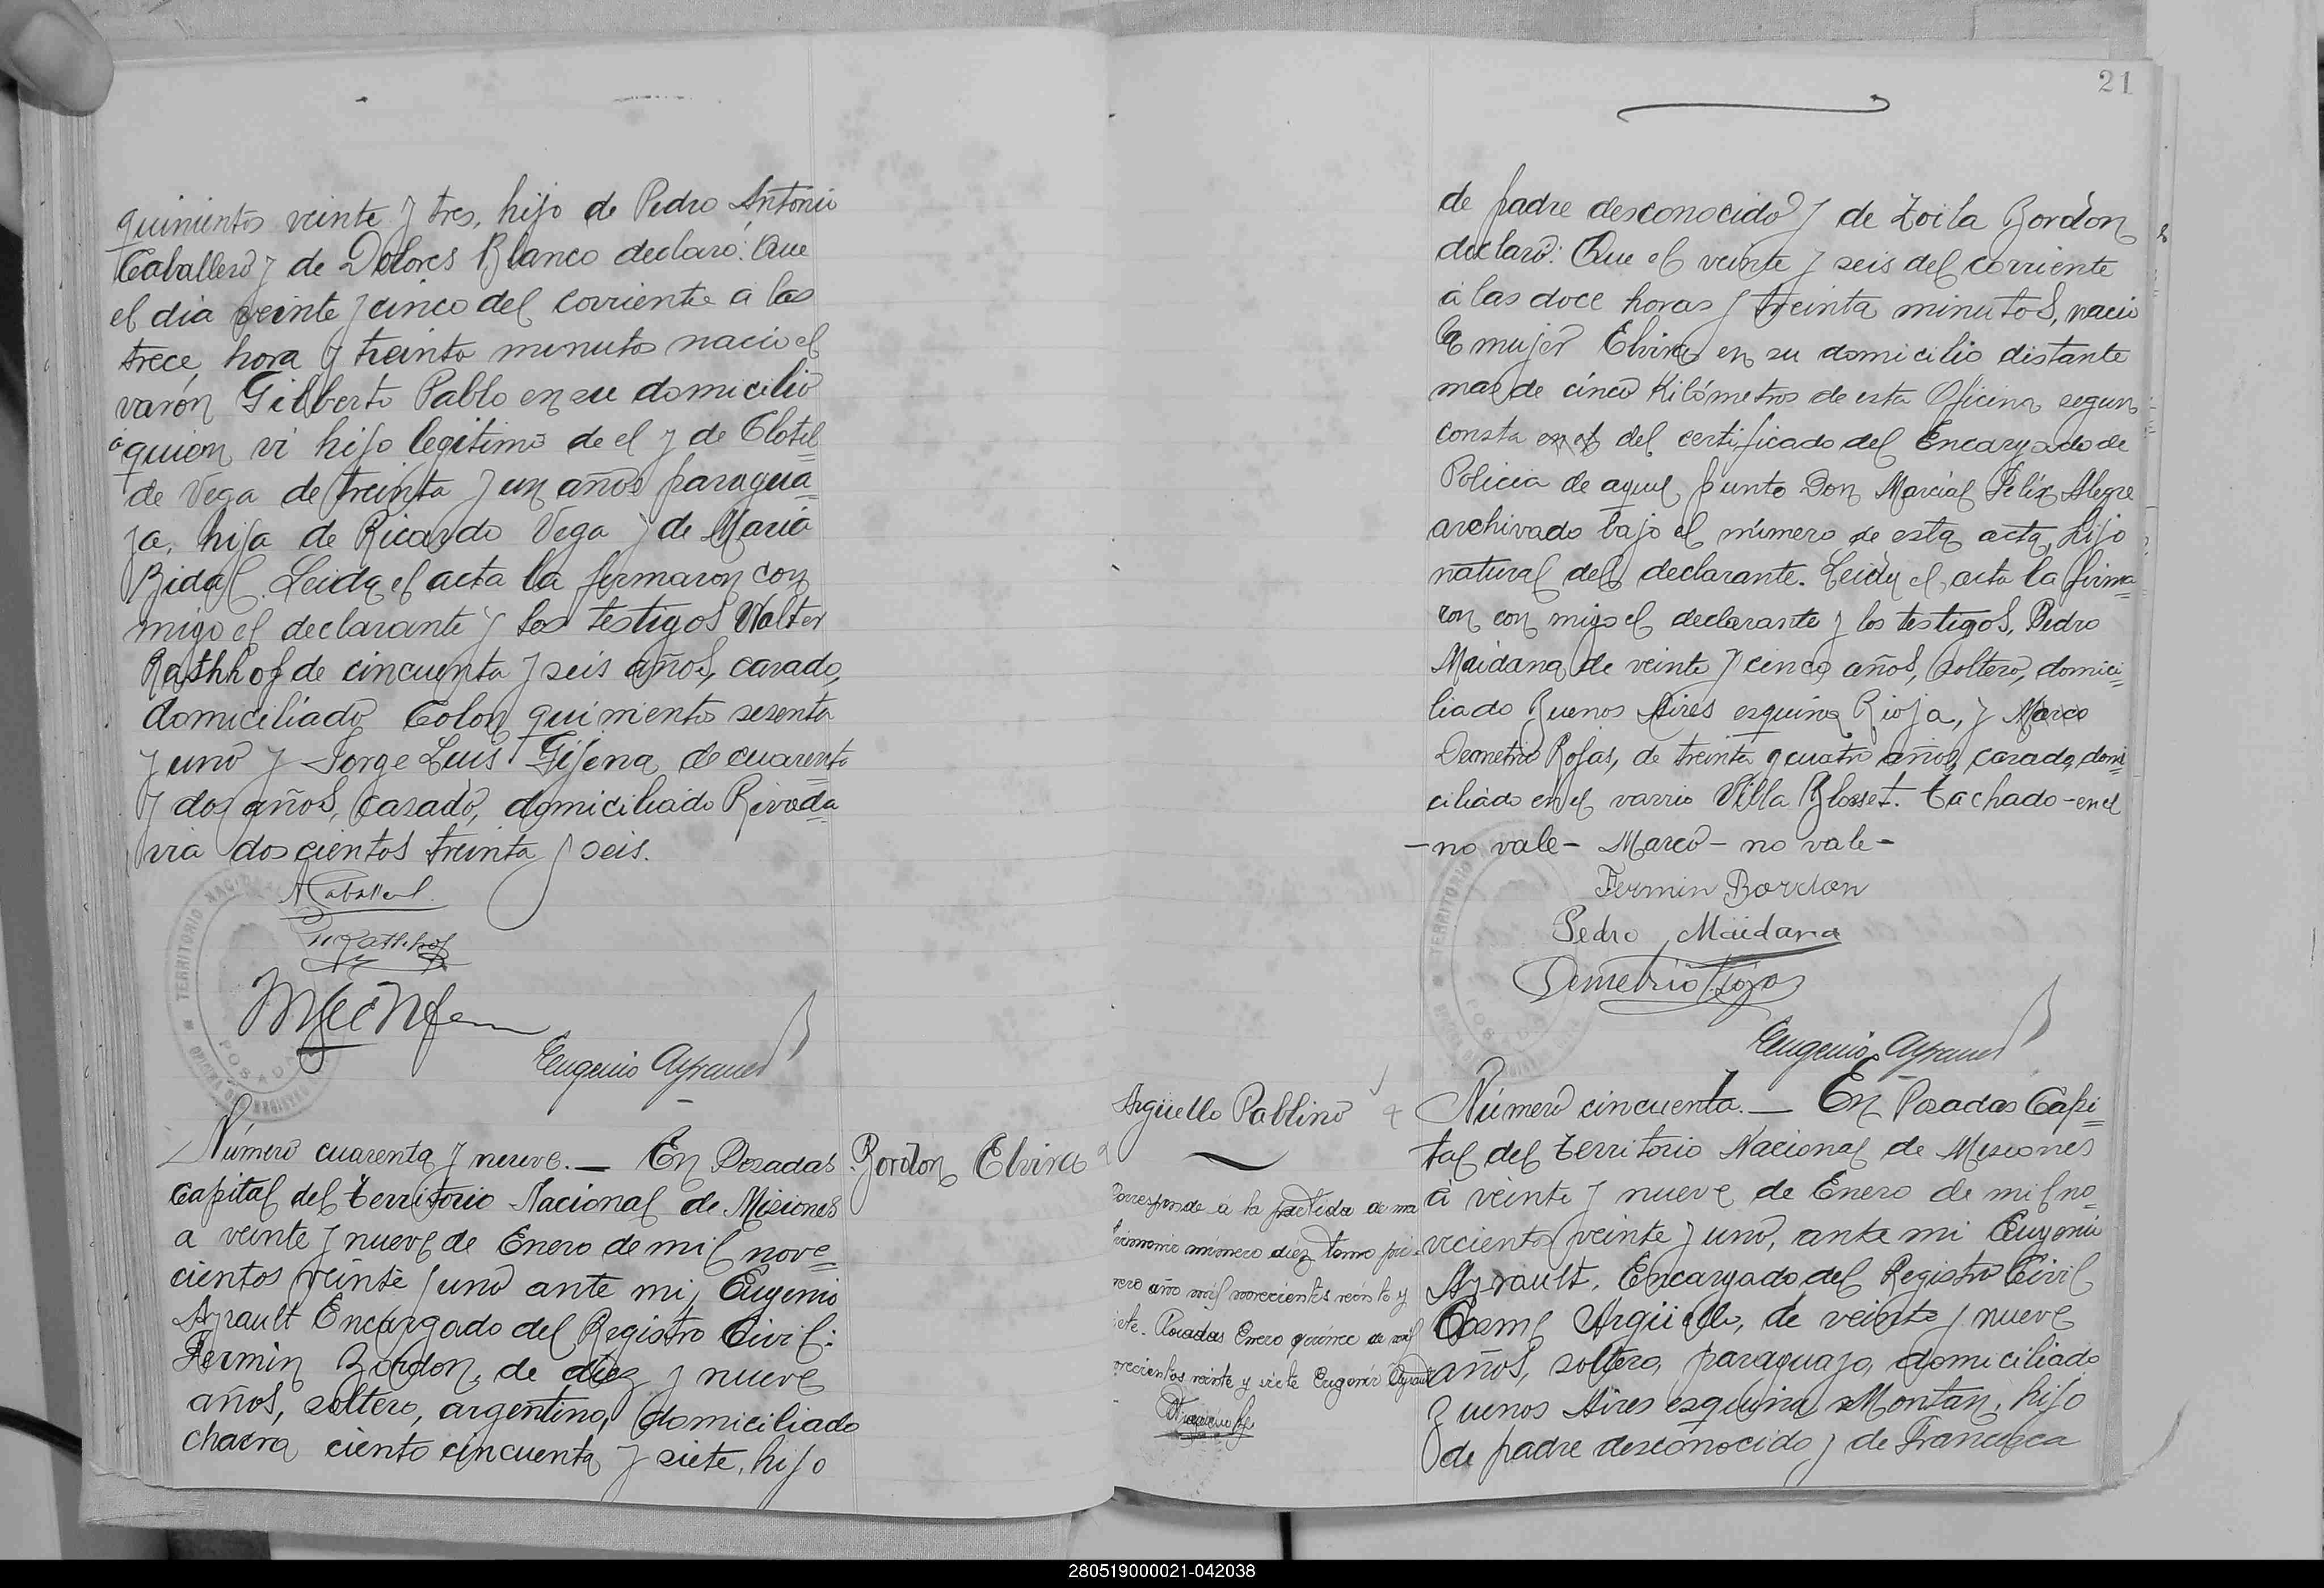 quinientos veinte y tres, hijo de Pedro Antonio
Caballero y de Dolores Blanco declaró: Que
el dia veinte y cinco del corriente a las
trece hora y treinta minutos nacio el
varón Gilberto Pablo en su domicilio
a quien vi hijo legitimo de el y de Clotil=
de Vega de treinta y un años paragua=
ya, hija de Ricardo Vega y de Maria
Bidal. Leida el acta la firmaron con
migo el declarante y los testigos Walter
Rathhof de cincuenta y seis años, casado,
domiciliado Colon quinientos sesenta
y uno y Jorge Luis Gijena de cuarenta
y dos años, casado, domiciliado Rivada=
via doscientos treinta y seis.
A Caballero
W Rathhof
Eugenio Ayrault
TERRITORIO NACIONAL
POSADAS
Número cuarenta y nueve. — En Posadas
Capital del Territorio Nacional de Misiones
a veinte y nueve de Enero de mil nove=
cientos veinte y uno ante mi, Eugenio
Ayrault Encargado del Registro Civil:
Fermin Bordon, de diez y nueve
años, soltero, argentino, domiciliado
chacra ciento cincuenta y siete, hijo
Bordon Elvira
21
de padre desconocido y de Zoila Bordón
declaró: Que el veinte y seis del corriente
a las doce horas y treinta minutos, nacio
la mujer Elvira en su domicilio distante
mas de cinco Kilómetros de esta Oficina segun
consta en el del certificado del Encargado de
Policia de aquel punto Don Marcial Felix Alegre
archivado bajo el número de esta acta, hijo
natural del declarante. Leida el acta la firma=
ron con migo el declarante y los testigos, Pedro
Maidana de veinte y cinco años, soltero, domici=
liado Buenos Aires esquina Rioja, y Marco
Demetrio Rojas, de treinta y cuatro años, casado, domi
ciliado en el varrio Villa Blosset. Tachado - en el
- no vale - Marco - no vale -
Fermin Bordon
Pedro Maidana
Demetrio Rojas
Eugenio Ayrault
TERRITORIO
Argüello Pablino
Corresponde á la partida de ma
trimonio número diez tomo pri=
mero año mil novecientos veinte y
siete. Posadas Enero quince de mil
novecientos veinte y siete Eugenio Ayrault
Número cincuenta. — En Posadas Capi=
tal del Territorio Nacional de Misiones
á veinte y nueve de Enero de mil no=
vecientos veinte y uno, ante mi Eugenio
Ayrault, Encargado del Registro Civil
Cosme Argüello, de veinte y nueve
años, soltero, paraguayo, domiciliado
Buenos Aires esquina Montan, hijo
de padre desconocido y de Francisca
280519000021-042038